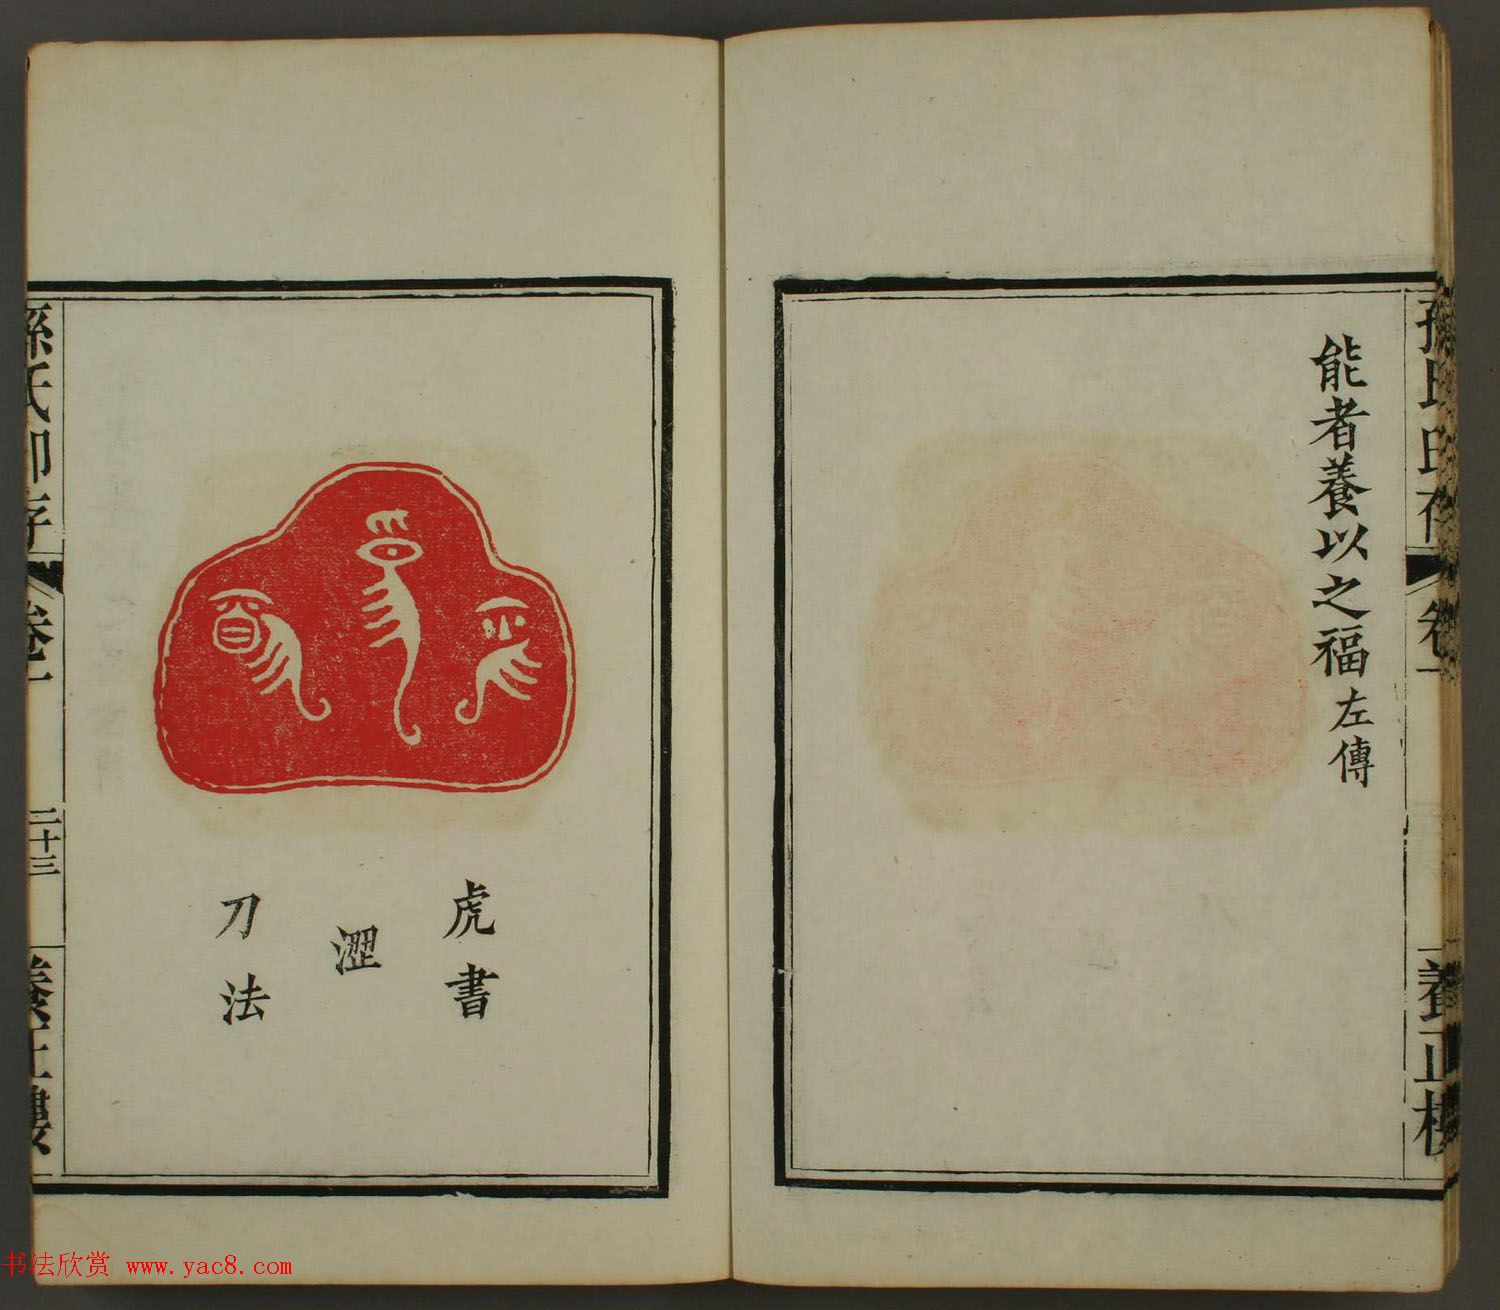 孫氏印存
卷一
養正樓
能者養以之福左傳
虎書
澀
刀法
孫氏印存
卷一
二十三
養正樓
书法欣赏 www.yac8.com